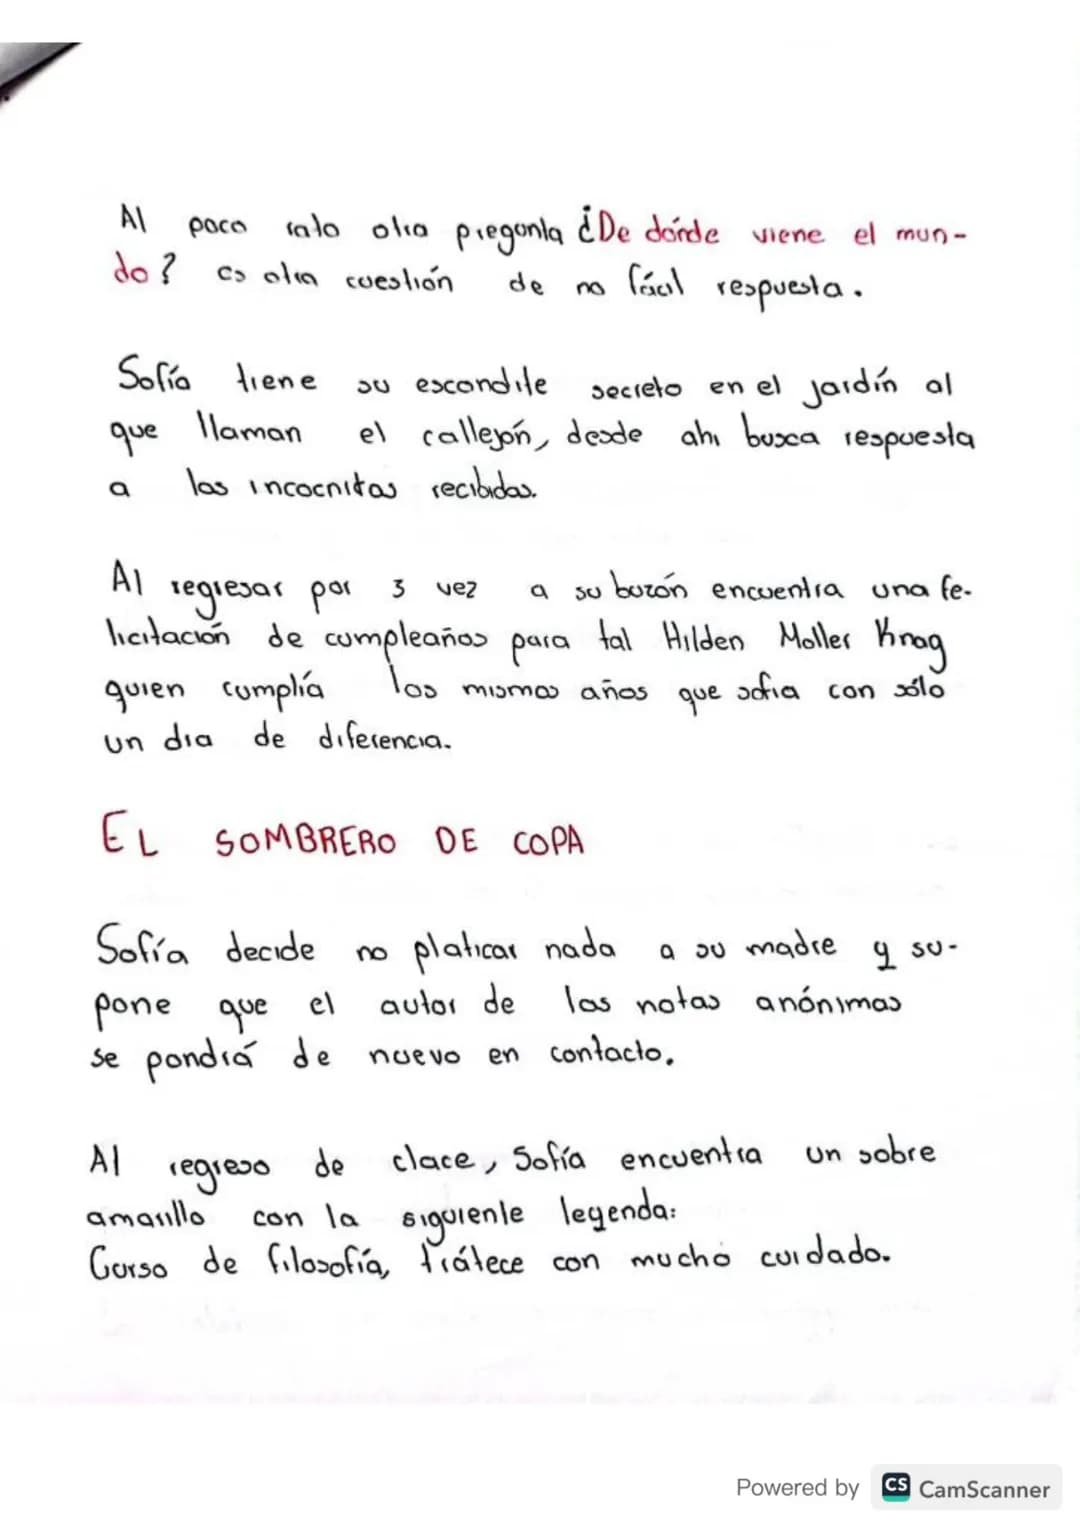 Al poco rato otra pregunta ¿De dónde viene el mun-
do? es otra cuestión de no fácil respuesta.
Sofía tiene su escondite secreto en el jardín al
que llaman el callejón, desde ahi busca respuesta
a las incocnitas recibidas.
Al regresar por 3 vez a su buzón encuentra una fe-
licitación de cumpleaños para tal Hilden Moller Knag
quien cumplía los mismos años que sofia con sólo
un dia de diferencia.
EL SOMBRERO DE COPA
Sofía decide no platicar nada a su madre y su-
pone que el autor de las notas anónimas
se pondrá de nuevo en contacto.
Al regreso de clace, Sofía encuentra un sobre
amarillo con la siguiente leyenda:
Curso de filosofía, trátece con mucho cuidado.
Powered by CS CamScanner